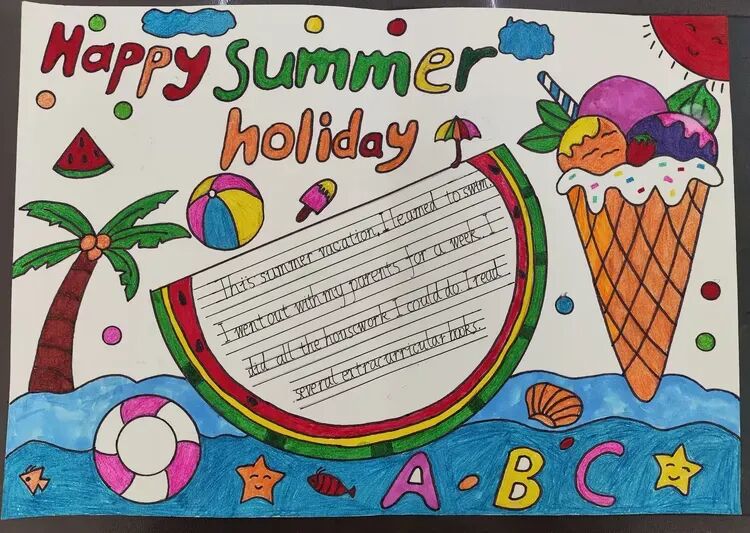 Happy summer
holiday
This summer vacation, I learned to swim.
I went out with my parents for a week. I
did all the houswork I could do. I read
several extracurricular books.
A-B C